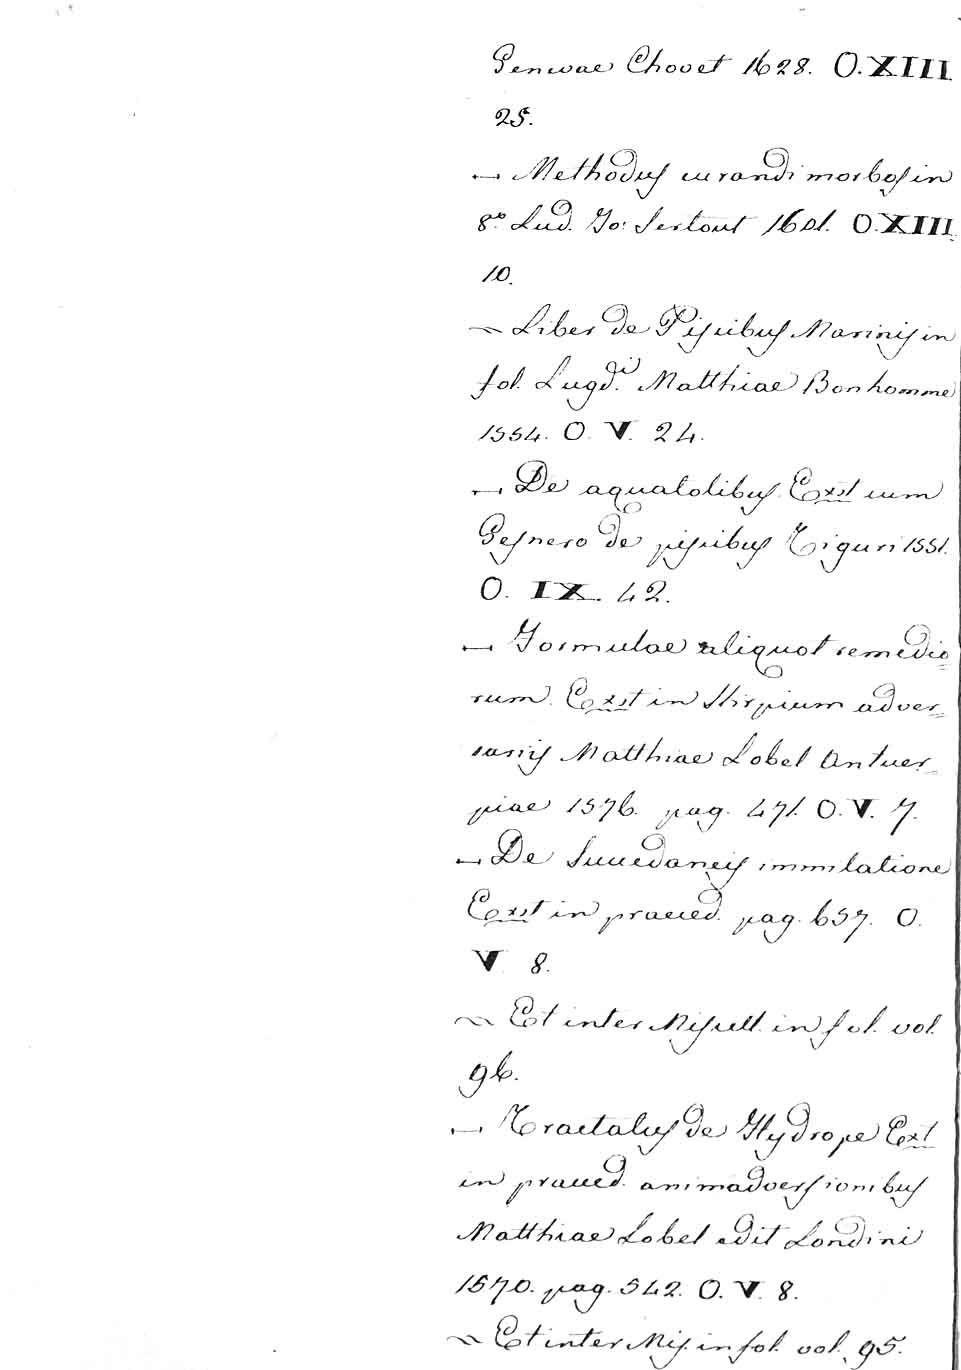 Genevae Chovet 1628. O. XIII
25.
— Methodus curandi morbos in
8.º Lud. Jo: Sertout 1601. O. XIII
10.
~ Liber de Piscibus Marinis in
fol. Lugd.i Matthiae Bonhomme
1554. O. V. 24.
— De aquatolibus Exst cum
Gesnero de piscibus Tiguri 1551.
O. IX. 42.
— Formulae aliquot remedio=
rum. Exst in Stirpium adver=
sariis Matthiae Lobel Antuer_
piae 1576. pag. 471. O. V. 7.
— De Succedaneis immilatione
Exst in praeced. pag. 657. O.
V. 8.
~ Et inter Miscell. in fol. vol.
96.
— Tractatus de Hydrope Ext
in praeced. animadversionibus
Matthiae Lobel edit Londini
1570. pag. 542. O. V. 8.
~ Et inter Mis. in fol. vol. 95.